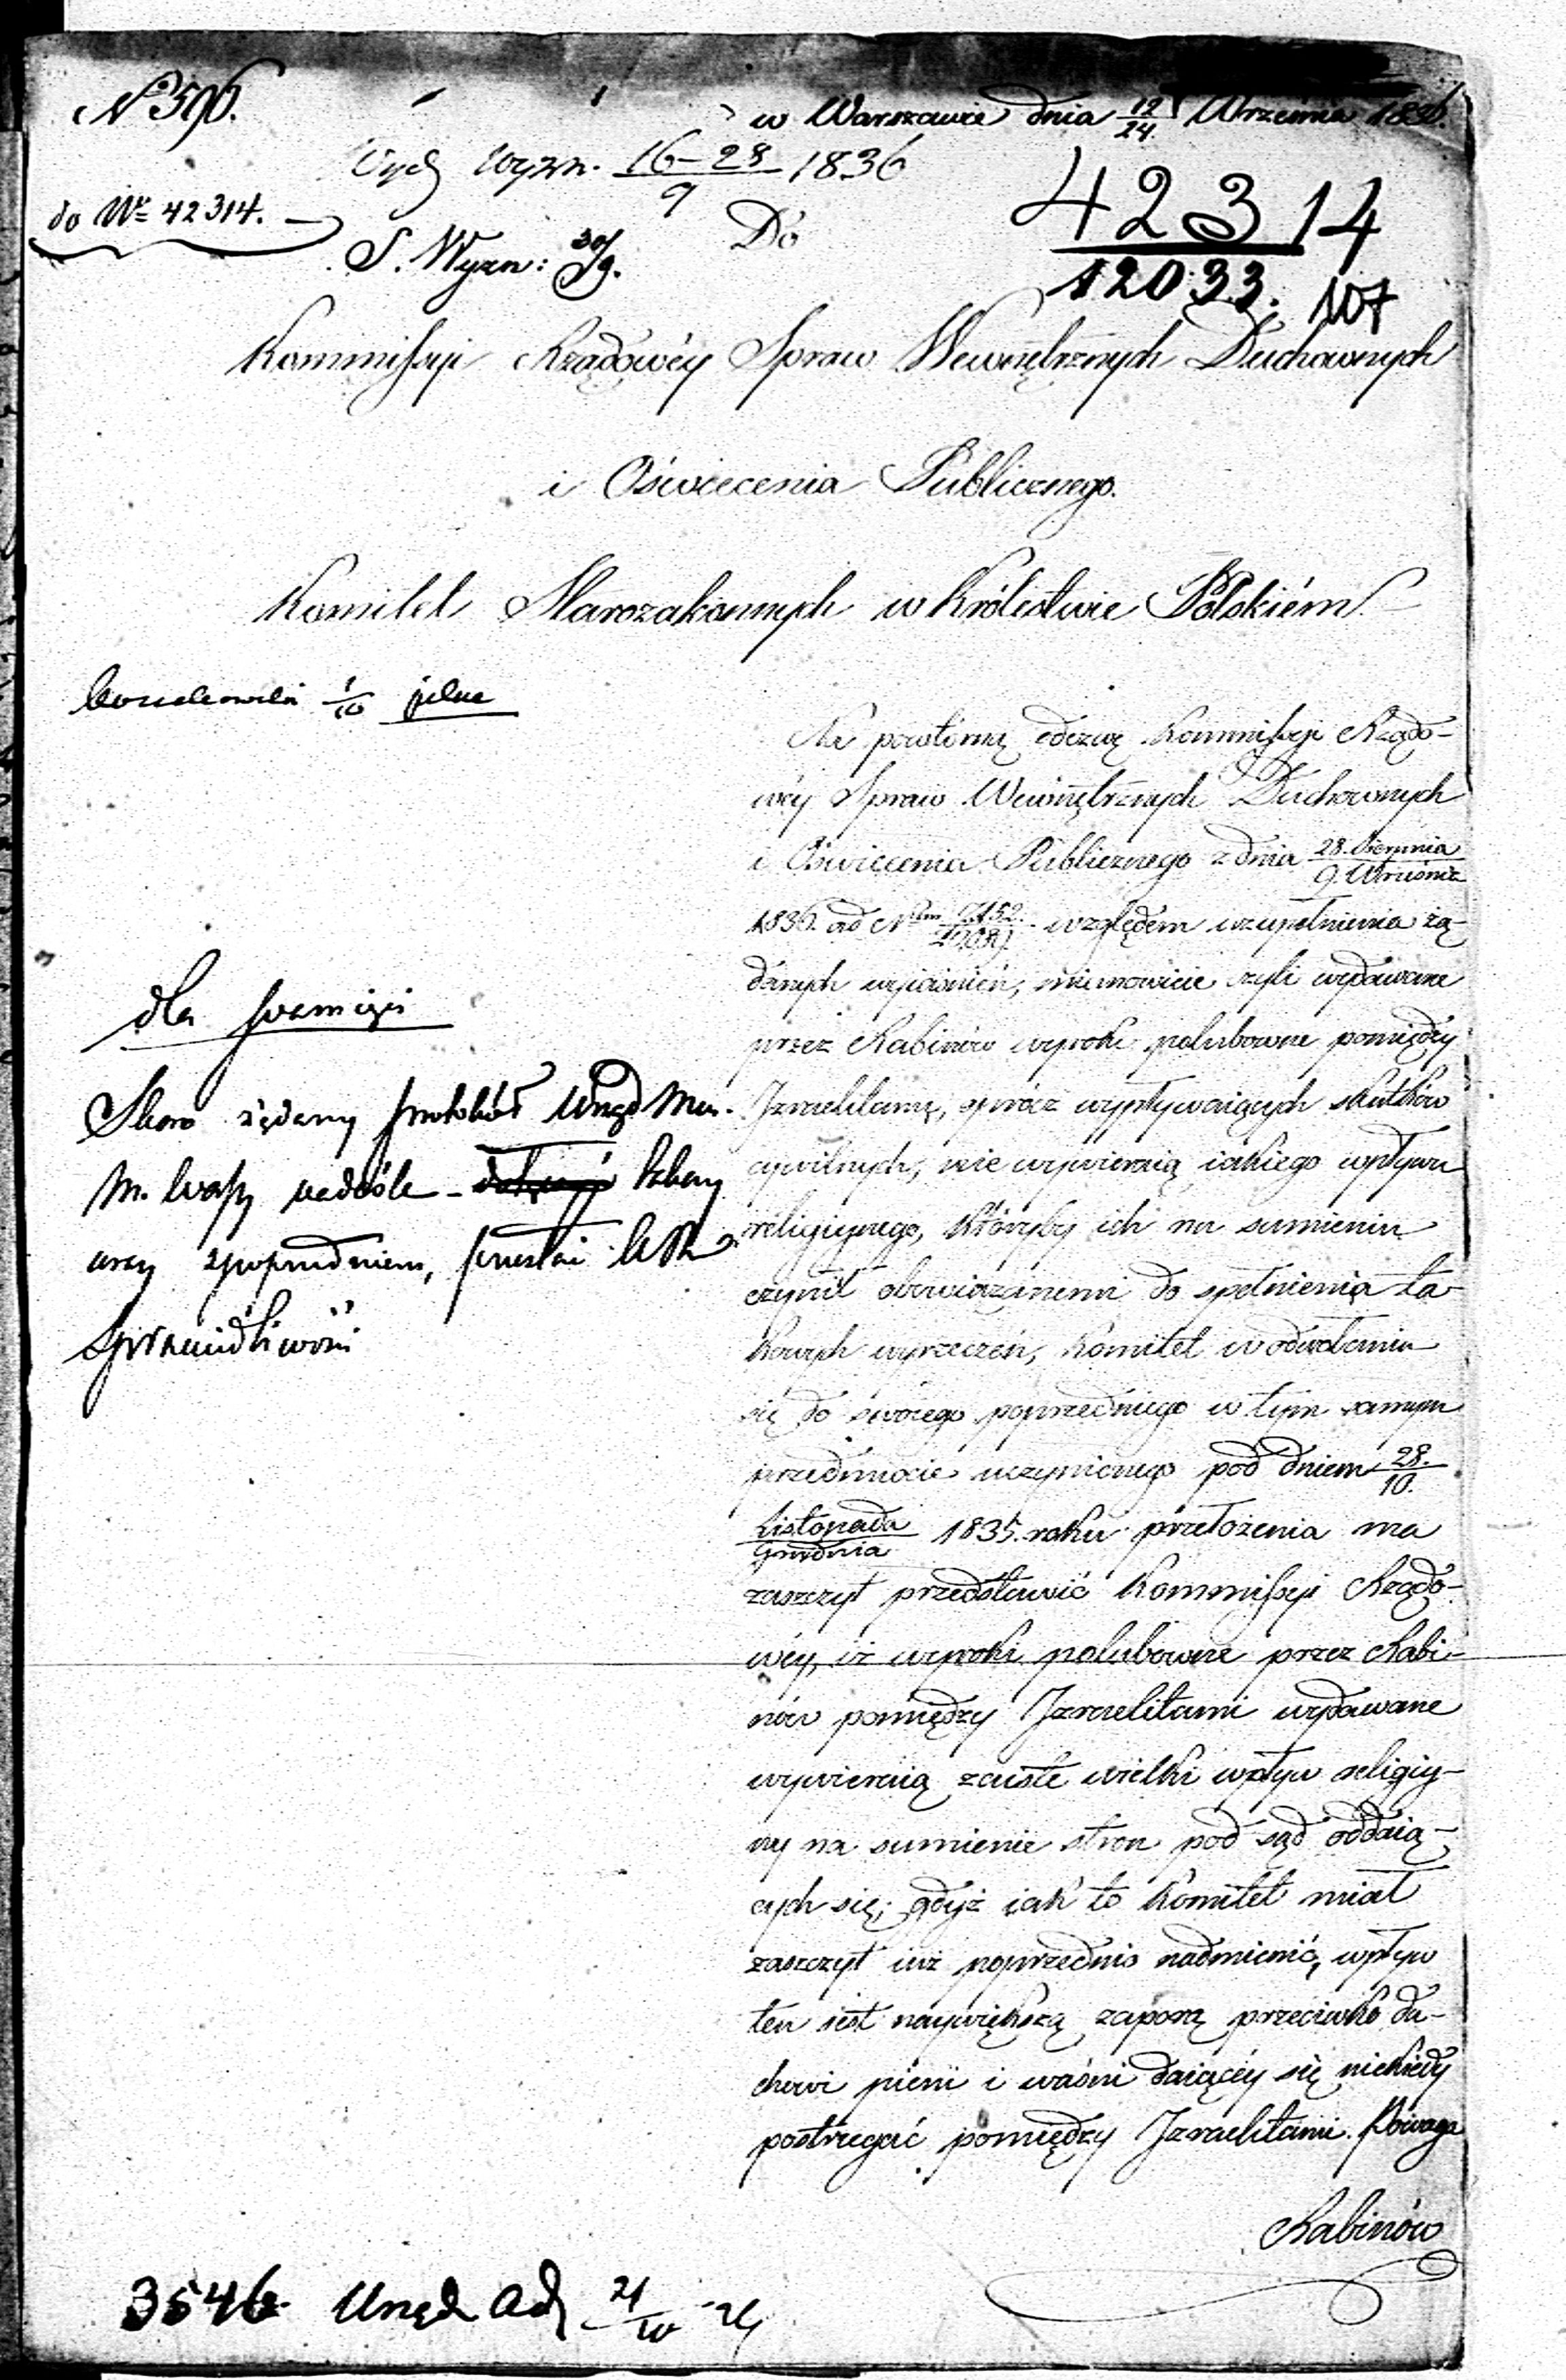 w Warszawie dnia 12/24 Września 1836.
Wyd Wyzn. 16-28/9 1836
do Nr 42314.
42314
12033. 107
S. Wyzn: 30/9.
Do
Kommissyi Rządowéy Spraw Wewnętrznych Duchownych
i Oświecenia Publicznego.
Komitet Starozakonnych w Królestwie Polskiém
1/10 pilne
Na powtórną odezwę Kommissyi Rządo-
wéy Spraw Wewnętrznych Duchownych
i Oświecenia Publicznego z dnia 28. Sierpnia/9. Września
1836. ad Num względem uzupełnienia żą-
danych wyjaśnień, mianowicie czyli wydawane
przez Rabinów wyroki polubowne pomiędzy
Izraelitami, oprócz wypływaiących skutków
cywilnych, nie wywieraią iakiego wpływu
religiynego, któryby ich na sumieniu
czynił obowiązanemi do spełnienia ta-
kowych wyrzeczeń, Komitet w odwołaniu
się do swoiego poprzedniego w tym samym
przedmiocie uczynionego pod dniem 28./10.
Listopada/Grudnia 1835. roku przełożenia ma
zaszczyt przedstawić Kommissyi Rządo-
wéy, iż wyroki polubowne przez Rabi-
nów pomiędzy Izraelitami wydawane
wywieraią zaiste wielki wpływ religiy-
ny na sumienie stron pod sąd oddaią-
cych się; gdyż iak to Komitet miał
zaszczyt iuż poprzednio nadmienić, wpływ
ten iest naywiększą zaporą przeciwko du-
chowi pieni i waśni daiącéy się niekiedy
postrzegać pomiędzy Izraelitami. Powaga
Rabinów
dla pamięci
Skoro żądany protokół Urząd Mun.
M. Warszy nadeśle
uraz z poprzedniem, przesłać
Sprawiedliwości
3546 Urzęd 21/10